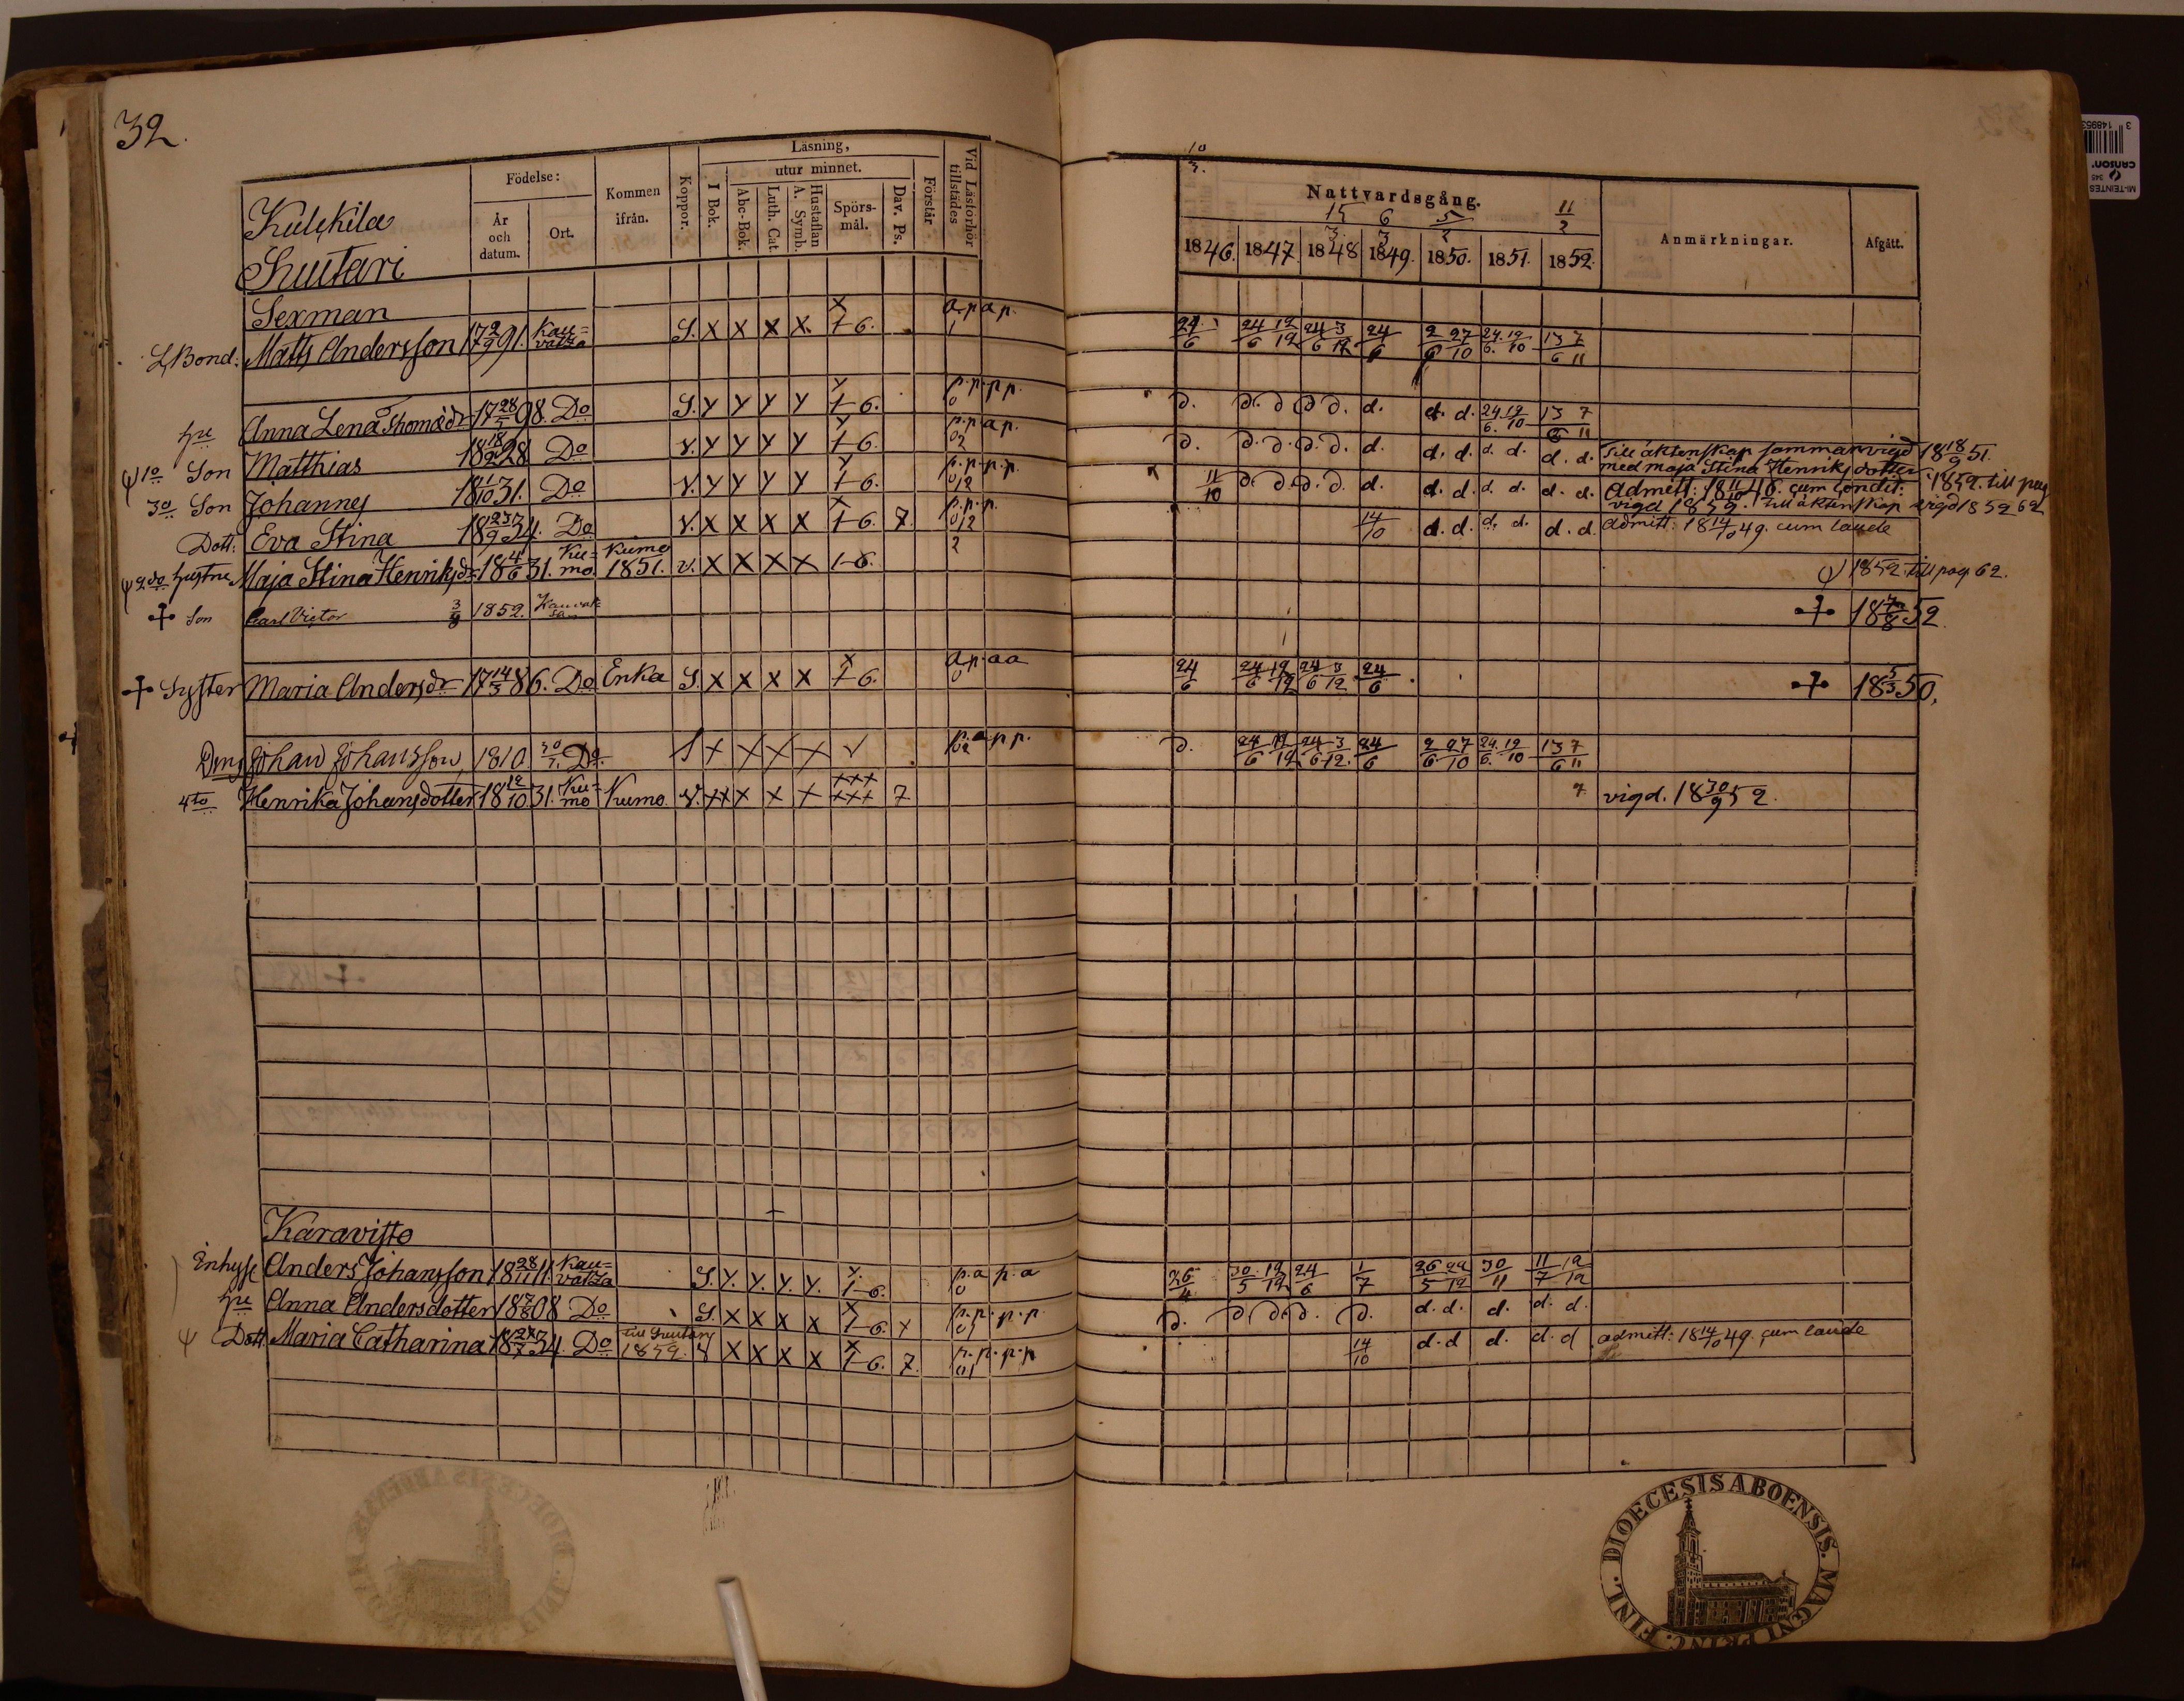 32.
Kulkkila
Suutari
Födelse:
År och datum.
Ort.
Kommen ifrån.
Koppor.
Läsning,
I Bok.
utur minnet.
Abc-Bok.
Luth. Cat.
A. Symb. Hustaflan
Spörsmål.
Dav. Ps.
Förstår
Vid Läsförhör tillstädes
Nattvardsgång.
1846. 1847. 1848 1849. 1850. 1851. 1852.
Anmärkningar.
Afgått.
Sexman
Bond. Matts Andersson 17 2/9 91. Kauvatza S. X X X X. 1-6. a.p a p. 24/6 24/6 19/12 24/6 3/12 24/6 2/6 27/10 24/6. 19/10 13/6 7/11
hu Anna Lena Thomædr 17 28/5 98. Do S. y y y y 1-6. p.p.p p. d. d. d d d. d. d. d. 24/6. 19/10 13/6 7/11
ψ 1o Son Matthias 18 18/2 28 Do v. y y y y 1-6. p.p a p. d. d. d. d. d. d. d. d. d. d. d. d. Till äktenskap sammanvigd 18 18/9 51.
med Maja Stina Henriksdotter 1852. till pag
3o Son Johannes 18 1/10 31. Do v. y y y y 1-6. p.p.p.p. 11/10 d. d. d. d. d. d. d. d. d. d. d. Admitt: 18 11/10 46. cum condit:
vigd 1852. till äktenskap vigd 1852 62
Dott: Eva Stina 18 23/9 34. Do v. X X X X 1-6. 7. p.p.p. 14/10 d. d. d. d. d. d. admitt: 18 14/10 49. cum laude
ψ 2do hustru Maja Stina Henriksdr 18 4/6 31. Kumo. Kumo 1851. v. X X X X 1-6. ψ 1852. till pag. 62.
+ Son Carl Victor 3/8 1852. + 18 7/8 52.
+ Syster Maria Andersdr 17 14/3 86. Do Enka S. X X X X 1-6. a p. a a 24/6 24/6 19/12 24/6 3/12 24/6 + 18 5/3 50.
Dreng Johan Johansson 1810 Do. S X X X X p. a p p. d. 24/6 19/12 24/6 3/12. 24/6 2/6 27/10 24/6. 19/10 13/6 7/11
4to Henrika Johansdotter 18 12/10 31. Kumo Kumo. v. XX X X X XXX XXX 7 7. vigd. 18 30/9 52.
Karavisto
Inhyse Anders Johansson 18 28/11 11. Kauvatza S. y. y. y. y. 1-6. p.a p.a 26/4 30/5 19/12 24/6 1/7 26/5 29/12 30/11 11/7 12/12
hu Anna Andersdotter 18 08 Do S. X X X X 1-6. X p.p.p.p. d. d d d. d. d. d. d. d. d.
ψ Dott Maria Catharina 18 34. Do till Suutari 1852. X X X X 1-6. 7. p.p.p.p 14/10 d. d d. d. d admitt: 18 14/10 49. cum laude
DIOECESIS ABOENSIS. MAGNI PRINC. FINL.